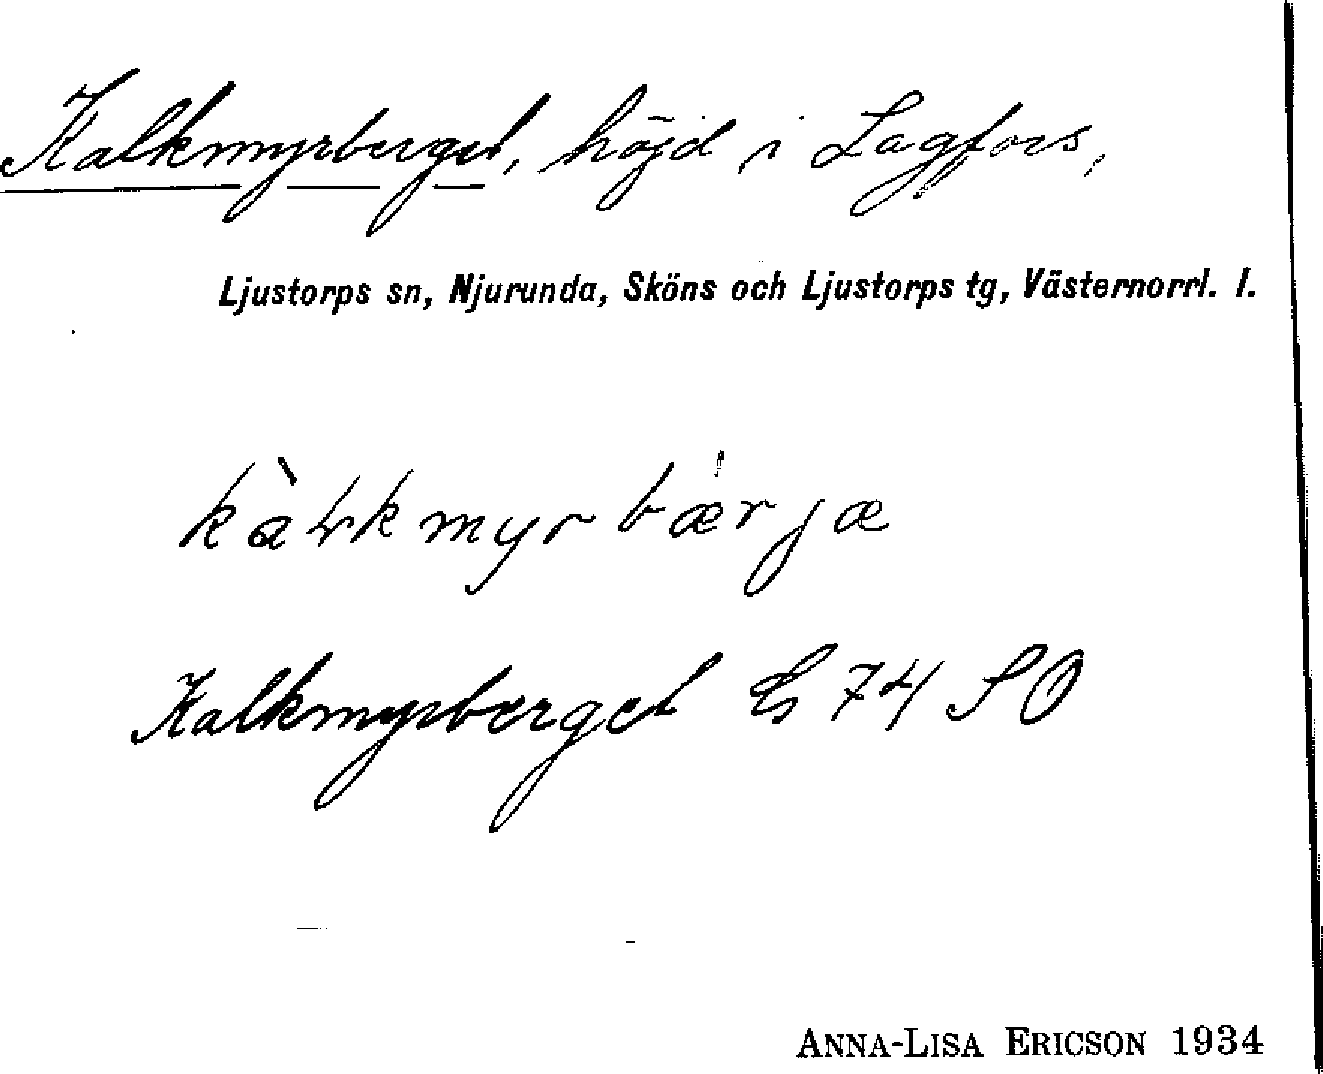 Kalkmyrberget, höjd i Lagfors,
Ljustorps sn, Njurunda, Sköns och Ljustorps tg, Västernorrl. l.
kàlkmyrbærjæ
Kalkmyrberget G 74 SO
ANNA-LISA ERICSON 1934